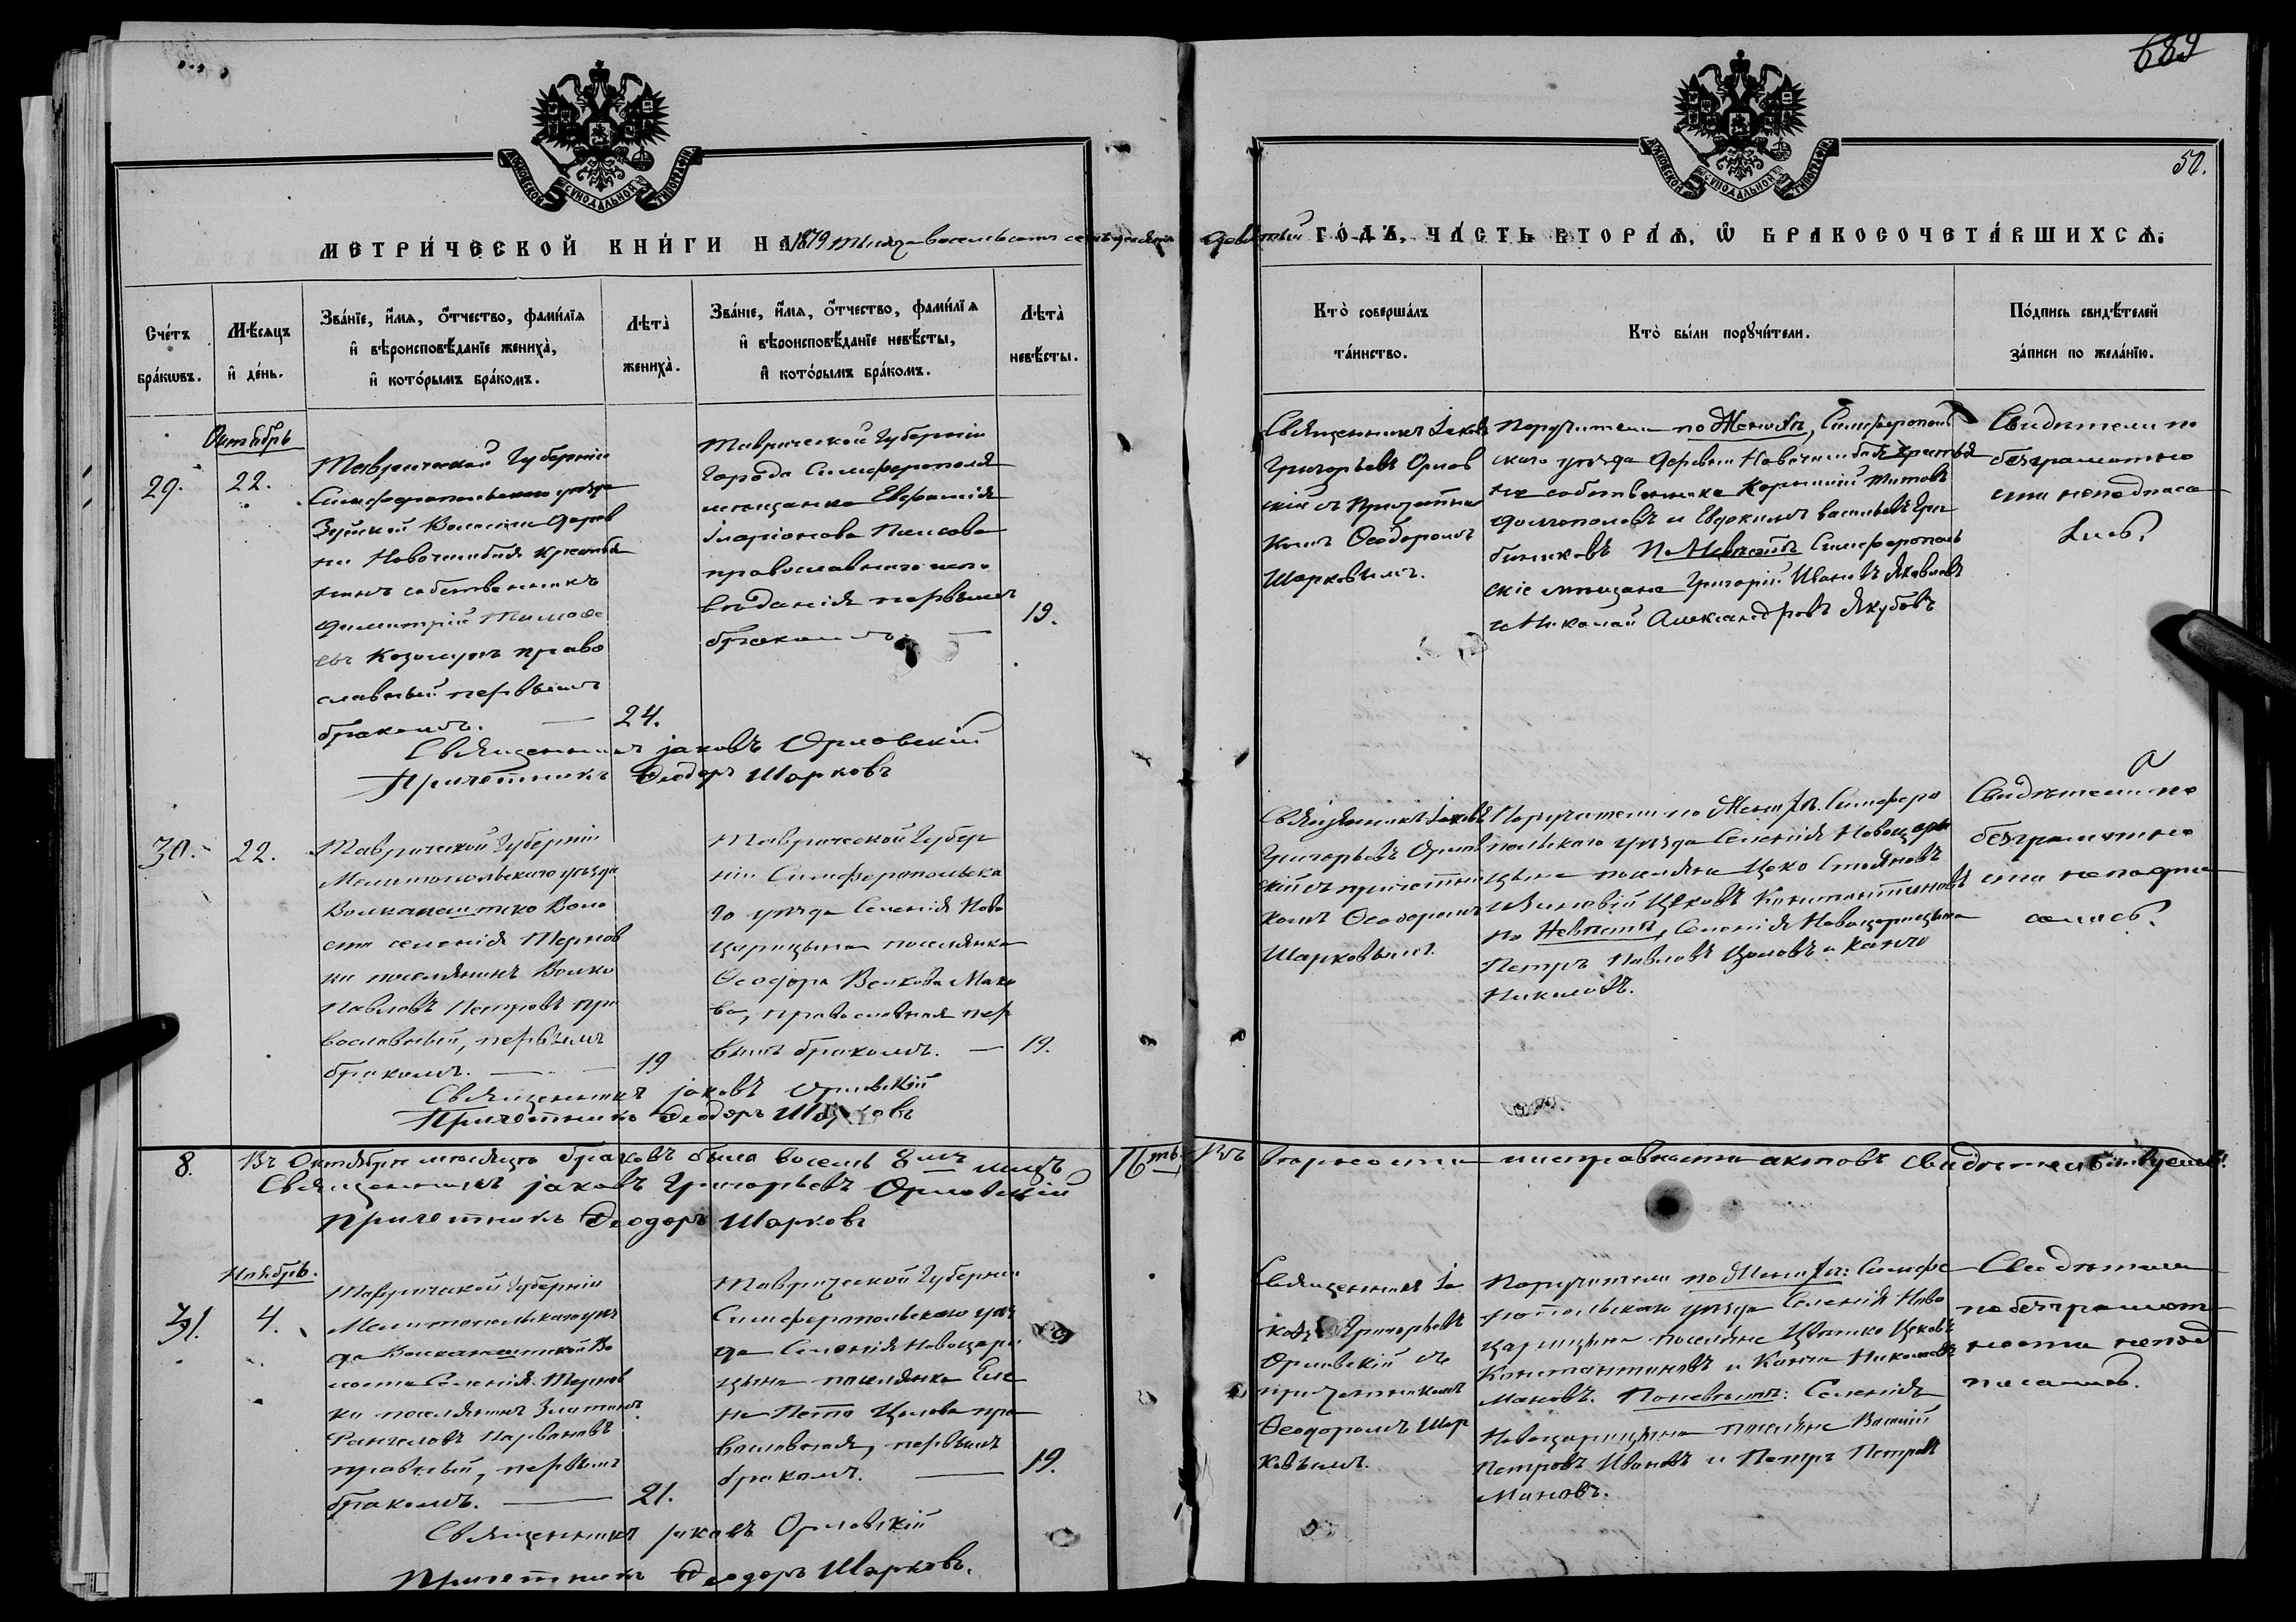 689
50.
МОСКОВСКОЙ СѴНОДАЛЬНОЙ ТИПОГРАФІИ
МОСКОВСКОЙ СѴНОДАЛЬНОЙ ТИПОГРАФІИ
МЕТРИ́ЧЕСКОЙ КНИ́ГИ НА 1879 тысяча восемьсотъ семьдесятъ девятый ГО́ДЪ, ЧА́СТЬ ВТОРА́Ѧ, Ѡ҆ БРАКОСОЧЕТА́ВШИХСѦ.
Сче́тъ
бра́кѡвъ.
Мѣ́сѧцъ
и҆ де́нь.
Зва́нїе, и҆́мѧ, ѻ҆́тчество, фами́лїѧ
и҆ вѣроисповѣ́данїе жениха̀,
и҆ кото́рымъ бра́комъ.
Лѣта̀
жениха̀.
Зва́нїе, и҆́мѧ, ѻ҆́тчество, фами́лїѧ
и҆ вѣроисповѣ́данїе невѣ́сты,
и҆ кото́рымъ бра́комъ.
Лѣта̀
невѣ́сты.
Кто̀ соверша́лъ
та́инство.
Кто̀ бы́ли порꙋчи́тели.
По́дпись свидѣ́телей
за́писи по жела́нїю.
Октябрь
29.
22.
Таврической Губерніи
Симферопольскаго уѣзда
Зуйской Волости дерев
ни Новочембая крестья
нинъ собственникъ
Димитрій Тимофе
евъ Козолупъ право
славный первымъ
бракомъ. —
24.
Таврической Губерніи
Города Симферополя
мещанка Евфимія
Иларіонова
православнаго испо
вѣданія первымъ
бракомъ. —
19.
Священникъ Іаковъ
Григорьевъ Орлов
скій съ Причетни
комъ Феодоромъ
Шарковымъ.
Поручители по Женихѣ, Симферополь
скаго уѣзда деревни Новочембая крестья
не собственники Корнилій Титовъ
Долгополовъ и Евдокимъ Васильевъ
По Невѣстѣ Симферополь
скіе мещане Григорій Ивановъ Яковлевъ
и Николай Александровъ Якубовъ
Свидѣтели по
безграмотно
сти неподписа
лись.
Священникъ Іаковъ Орловскій
Причетникъ Феодоръ Шарковъ
30.
22.
Таврической Губерніи
Мелитопольскаго уѣзда
Воло
сти селенія Тернов
ки поселянинъ Волко
Павловъ Петровъ пра
вославный, первымъ
бракомъ. —
19
Таврической Губер
ніи Симферопольска
го уѣзда Селенія Ново
царицына поселянка
Феодора Велкова Мано
ва, православная пер
вымъ бракомъ. —
19.
Священникъ Іаковъ
Григорьевъ Орлов
скій съ причетни
комъ Феодоромъ
Шарковымъ.
Поручители по Женихѣ Симферо
польскаго уѣзда Селенія Новоцари
цына поселяне Цеко Стояновъ
Цековъ Константиновъ
по Невѣстѣ, Селенія Новоцарицына
Петръ Павловъ Цоловъ и Канчо
Николовъ.
Свидѣтели по
безграмотно
сти неподпи
сались.
Священникъ Іаковъ Орловскій
Причетникъ Феодоръ Шарковъ
8.
Въ Октябрѣ мѣсяцѣ браковъ было восемь 8мь лицъ
16ть
Въ вѣрности и исправности актовъ свидѣтельствуемъ:
Священникъ Іаковъ Григорьевъ Орловскій
Причетникъ Феодоръ Шарковъ
Ноябрь.
31.
4.
Таврической Губерніи
Мелитопольскаго уѣз
да Во
лости Селенія Тернов
ки поселянинъ Златанъ
Рангеловъ Парвановъ
правный, первымъ
бракомъ. —
21.
Таврической Губерніи
Симферопольскаго уѣз
да Селенія Новоцари
цына поселянка Еле
на Пето Цолова пра
вославная, первымъ
бракомъ. —
19.
Священникъ Іа
ковъ Григорьевъ
Орловскій съ
причетникомъ
Феодоромъ Шар
ковымъ.
Поручители по Женихѣ: Симфе
ропольскаго уѣзда Селенія Ново
царицына поселяне Цвятко Цековъ
Константиновъ и Канчо Николовъ
Мановъ. По невѣстѣ: Селенія
Новоцарицына поселяне Василій
Петровъ Ивановъ и Петръ Петровъ
Мановъ.
Свидѣтели
по безграмот
ности непод
писались.
Священникъ Іаковъ Орловскій
Причетникъ Феодоръ Шарковъ.